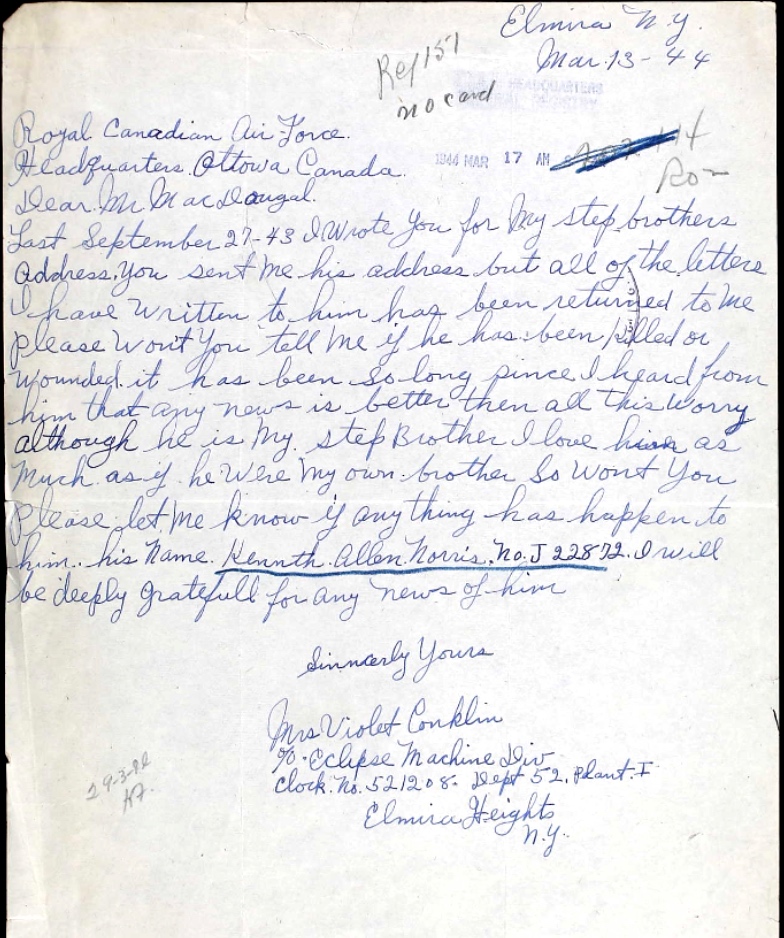 Elmira N.Y.
Mar. 13-44
Ref 151
no card
HEADQUARTERS
Royal Canadian Air Force.
Headquarters. Ottowa Canada.
1944 MAR 17 AM
Dear. Mr MacDougal.
Last September 27-43 I Wrote You for My step brothers
address. You sent Me his address but all of the letters
I have Written to him has been returned to Me
Please Won't You tell Me if he has been killed or
wounded. it has been so long since I heard from
him that any news is better then all this Worry
although he is My step Brother I love him as
Much as if he Were My own brother So Wont You
Please let Me know if any thing has happen to
him. his Name. Kennth. Allen. Norris. No. J 22872. I will
be deeply gratefull for any news of him
Sinncerly Yours
Mrs Violet Conklin
℅ Eclipse Machine Div
Clock. No. 521208. Dept 52. Plant. I
Elmira Heights
N.Y.